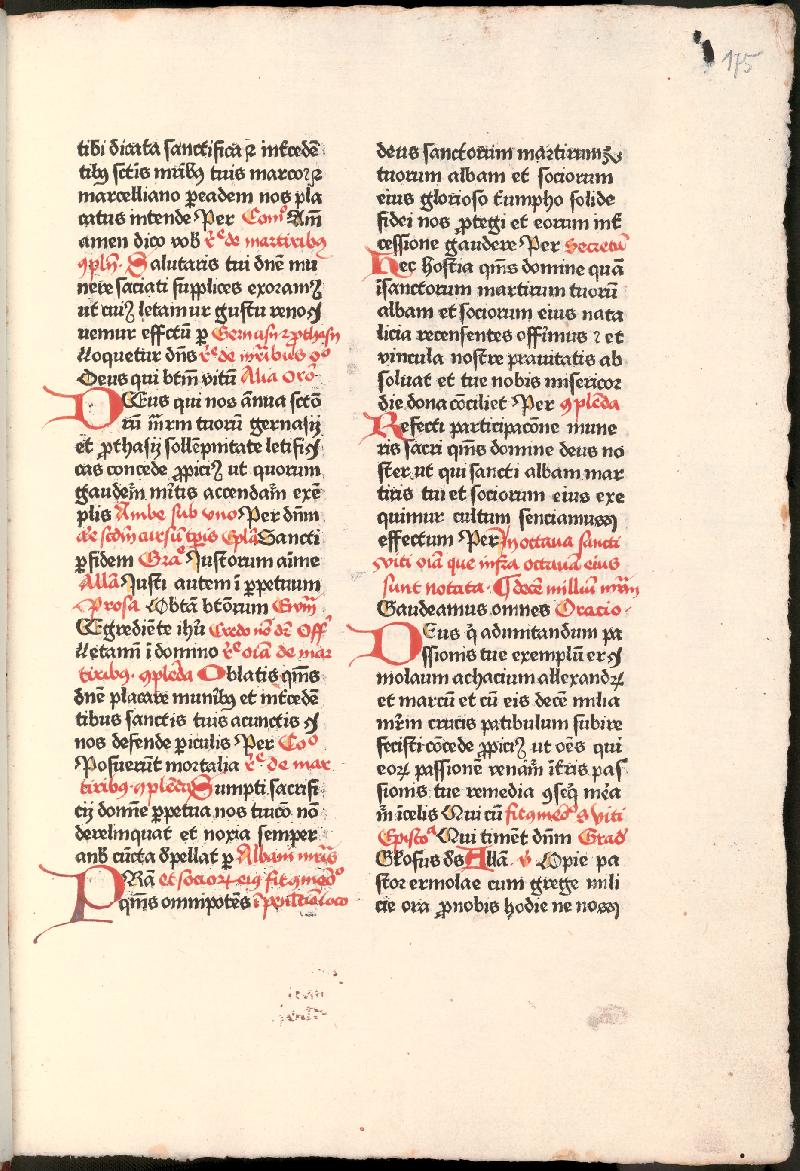 175
tibi dicata sanctifica ⁊ int̄cedē
tibꝫ sct̄is mr̄ibꝫ tuis marco ⁊
marcelliano ꝑeadem nos pla
catus intende Per Com̄o Am̄
amen dico vob̄ r̄e de martiribꝫ
ꝯpl̄n̄. Salutaris tui dn̄e mu
nere saciati supplices exoramꝰ
ut cuiꝰ letamur gustu renoꝯ
uemur effc̄tū ꝑ Geruasij ⁊ ꝓthasij
Loquetur dn̄s r̄e de mr̄ibus oo
Deus qui btm̄ vitū Alia Oro
Deus qui nos ānua sctō
rū mr̄m tuorū geruasij
et ꝓthasij sollēpnitate letifiꝯ
cas concede ꝓpiciꝰ ut quorum
gaudem̄ mr̄itis accendam̄ exē
plis Ambe sub vno Per dn̄m
ar̄e scdm̄ cursū tp̄is Ep̄la Sancti
ꝑ fidem Gra° Iustorum aīme
Allā Iusti autem ī ꝑpetuum
Prosa Obtā btōrum Ewm̄
Egrediēte ihū Credo nō dr̄ Off̄
Letam̄ ī domino r̄e oīa de mar
tiribꝫ. ꝯplēda Oblatis qm̄s
dn̄e placare munibꝫ et int̄cedē
tibus sanctis tuis acunctis ꝯ
nos defende ꝑiculis Per Co°
Posuerūt mortalia r̄e de mar
tiribꝫ ꝯplēda Sumpti sacrifi
cij domīe ꝑpetua nos tuicō nō
derelinquat et noxia semper
a nob̄ cūcta d̄pellat ꝑ Albani mr̄is
PRīa et socioꝝ eiꝰ fit ꝯmēo°
qm̄s omnipotēs ī penl̄tīa loco
deus sanctorum martirumꝫ
tuorum albani et sociorum
eius glorioso tͥumpho solide
fidei nos ꝓtegi et eorum int̄
cessione gaudere Per Secretū
Hec hostia qm̄s domine quā
ī sanctorum martirum tuorū
albani et sociorum eius nata
licia recensentes offīmus ⁊ et
vincula nostre prauitatis ab
soluat et tue nobis misericor
die dona cōciliet Per ꝯplēda
Refecti participacōne mune
ris sacri qm̄s domine deus no
ster ut qui sancti albani mar
tiris tui et sociorum eius exe
quimur cultum senciamus
effectum Per In octaua sancti
viti oīa que infra octauā eius
sunt notata. Decē milliū mr̄m
Gaudeamus omnes Oracio
Deus q̄ ad imitandum pa
ssionis tue exemplū erꝯ
molaum achacium allexandrꝝ
et marcū et cū eis decē milia
mr̄im crucis patibulum subire
fecisti cōcede ꝓpiciꝰ ut oēs qui
eoꝝ passionē venam̄ īt̄ris pas
sionis tue remedia ꝯseq̄ mēa
m̄ ī celis Qui cū fit ꝯmeō s viti
Episto^a Qui timēt dn̄m Grad̄
Gl̄osus d̄s Allā. v̄ Copie pa
stor ermolae cum grege mili
cie ora ꝓ nobis hodie ne nos